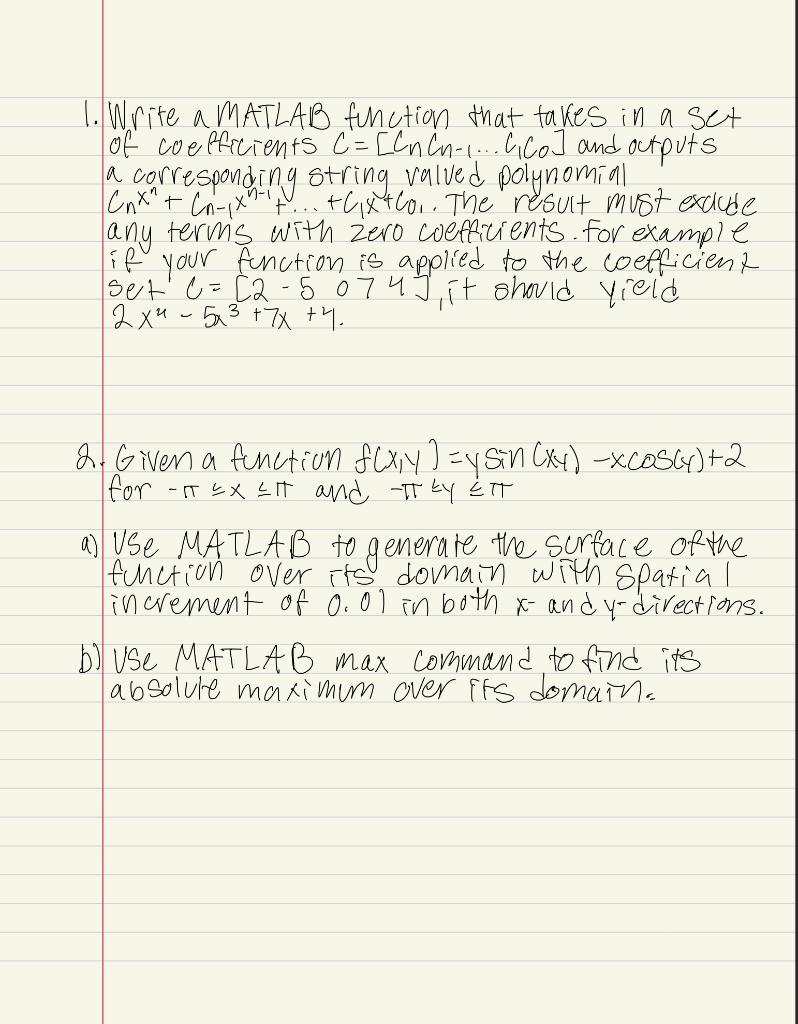 1. Write a MATLAB function that takes in a set
of coefficients C = [Cn Cn-1 ... C1 C0] and outputs
a corresponding string valued polynomial
Cnxⁿ + Cn-1xⁿ⁻¹ + ... + C1x + C0. The result must exclude
any terms with zero coefficients. For example
if your function is applied to the coefficient
set C = [2 -5 0 7 4], it should yield
2x⁴ - 5x³ + 7x + 4.
2. Given a function f(x,y) = y sin(xy) - x cos(y) + 2
for -π ≤ x ≤ π and -π ≤ y ≤ π
a) Use MATLAB to generate the surface of the
function over its domain with spatial
increment of 0.01 in both x- and y-directions.
b) Use MATLAB max command to find its
absolute maximum over its domain.